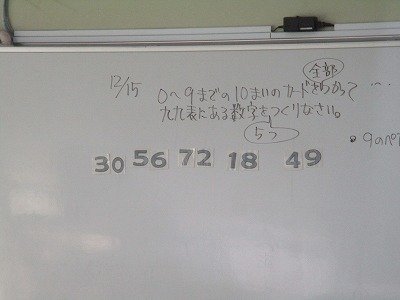 全部
12/15 0~9までの10まいのカードをつかって
九九表にある数字をつくりなさい。
5つ
・9のペア
30 56 72 18 49